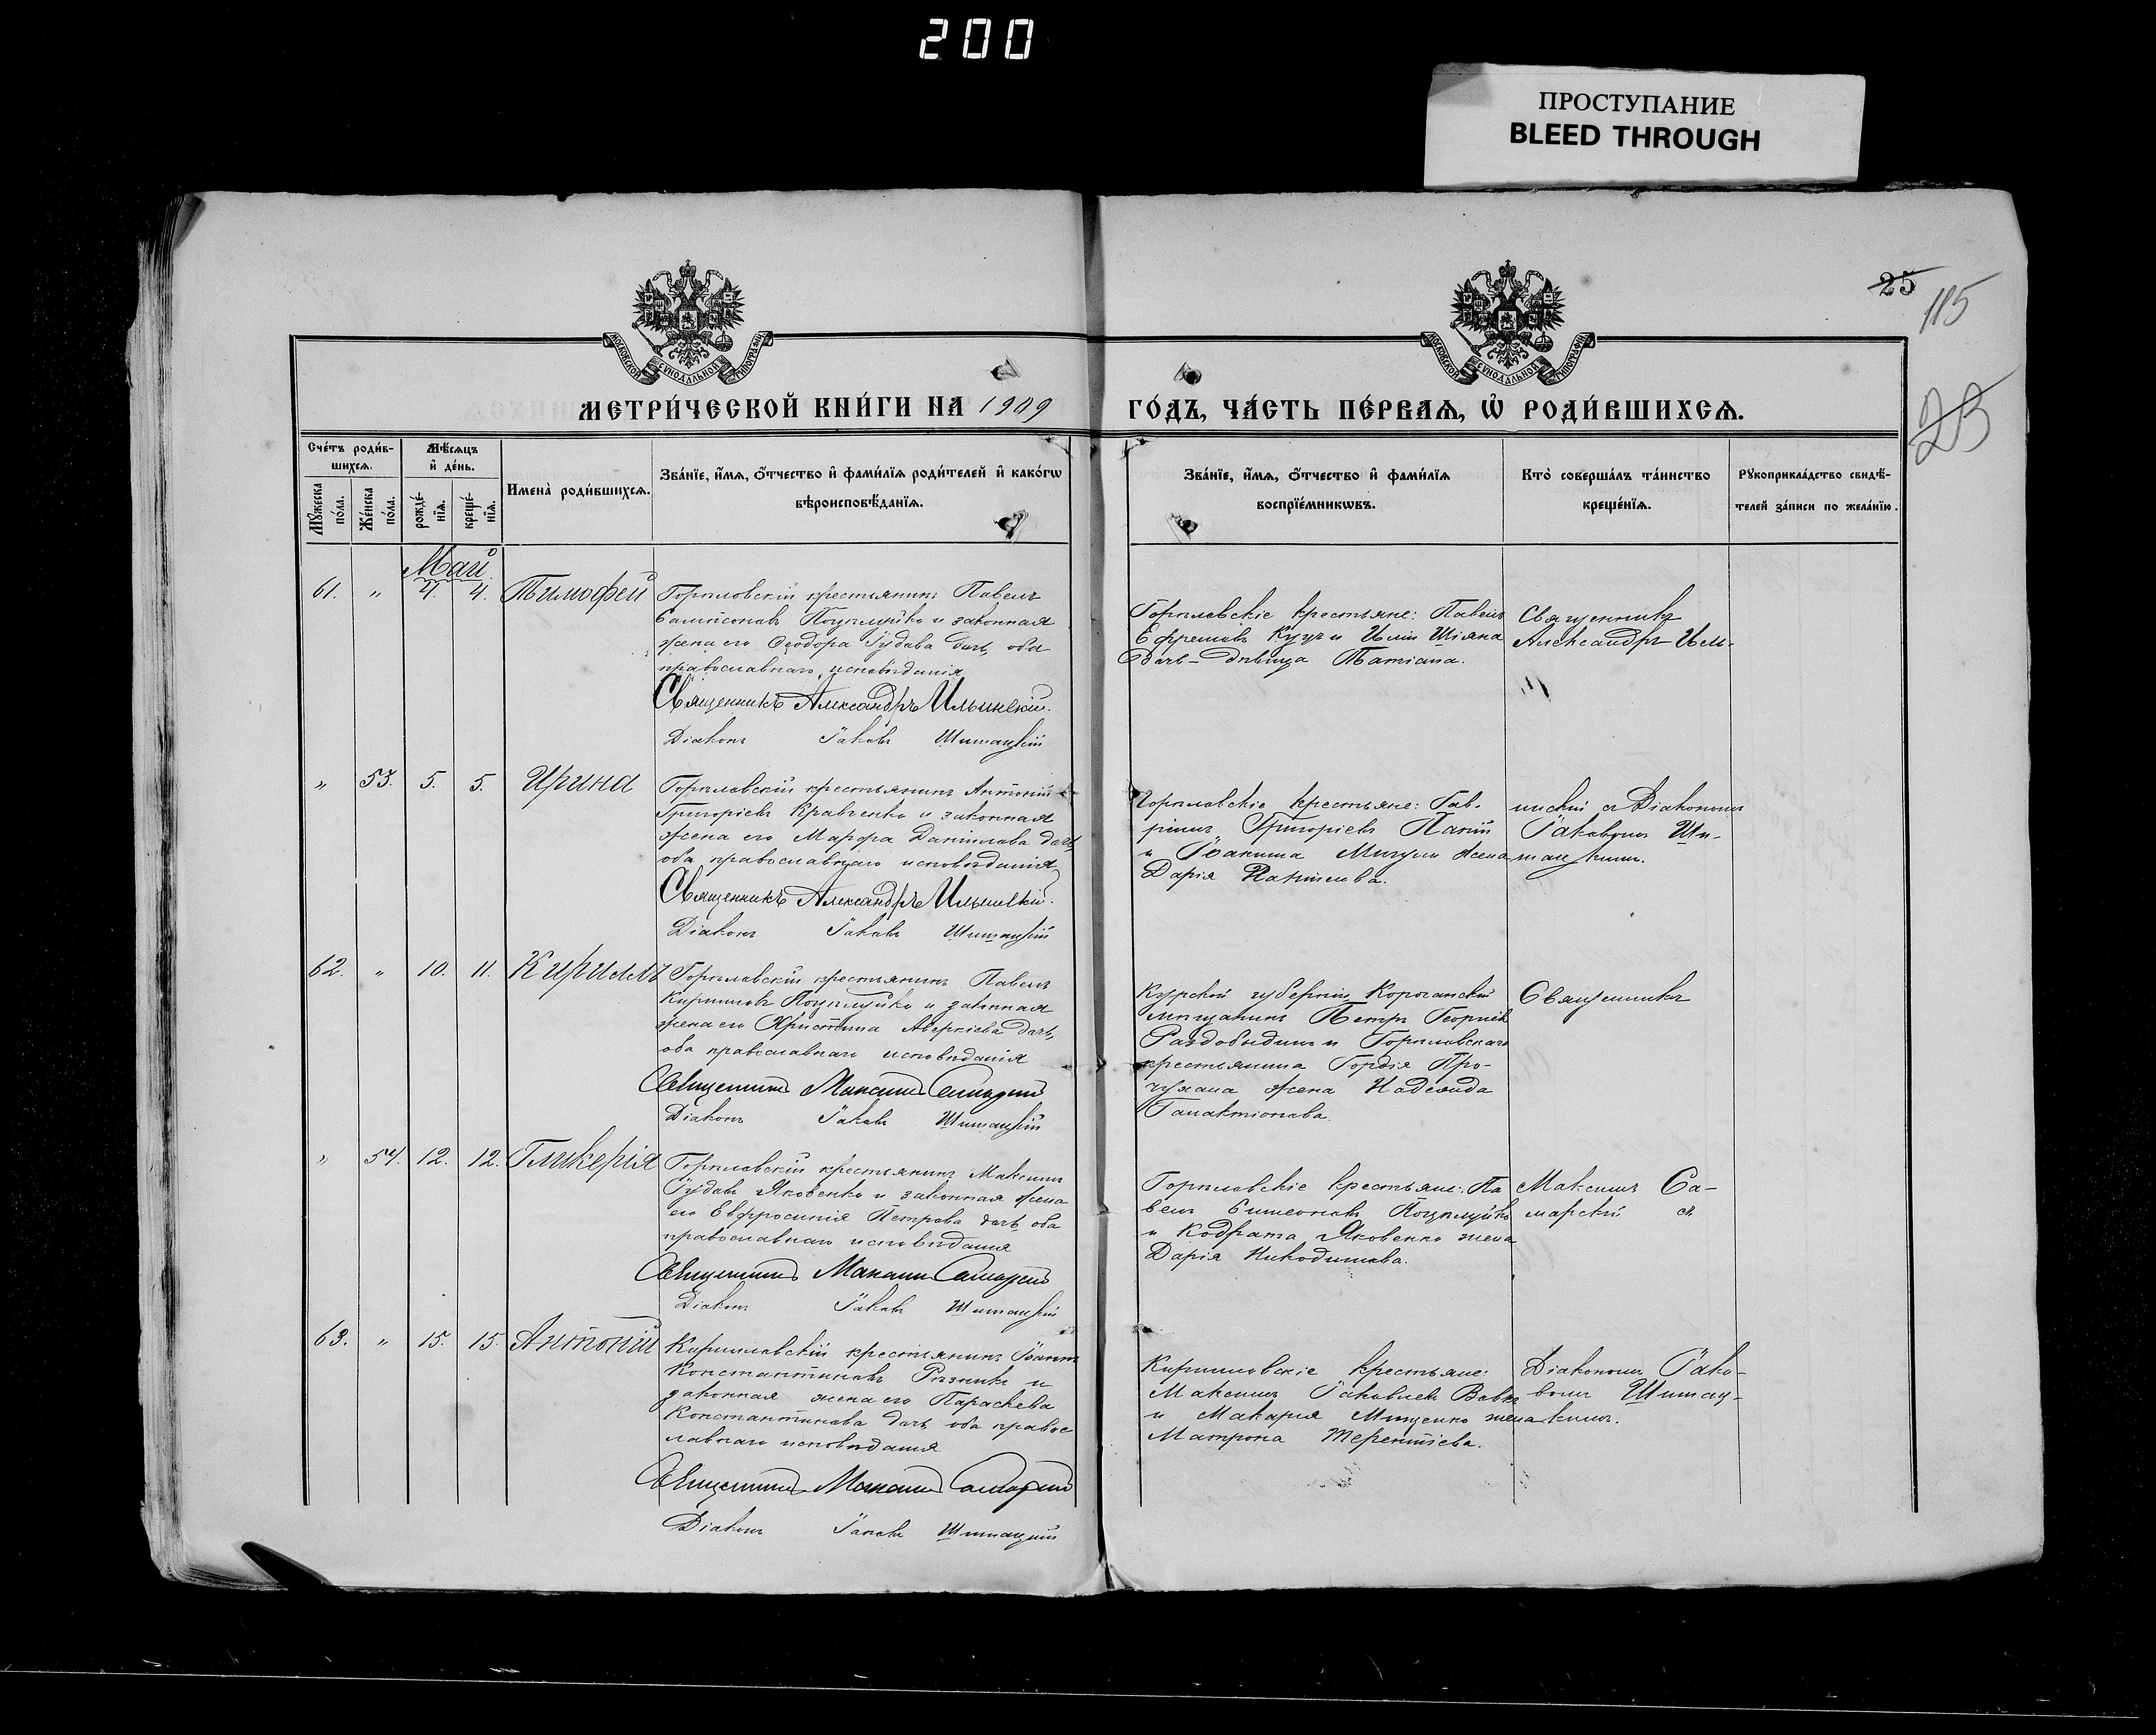 200
ПРОСТУПАНИЕ
BLEED THROUGH
25
115
23
МОСКОВСКОЙ СѴНОДАЛЬНОЙ ТИПОГРАФІИ
МОСКОВСКОЙ СѴНОДАЛЬНОЙ ТИПОГРАФІИ
МЕТРИ́ЧЕСКОЙ КНИ́ГИ НА 1909
ГО́ДЪ, ЧА́СТЬ ПЕ́РВАѦ, Ѡ҆ РОДИ́ВШИХСѦ.
Сче́тъ роди́в-
шихсѧ.
Мꙋ́жеска по́ла.
Же́нска по́ла.
Мѣ́сѧцъ
и҆ де́нь.
рожде́-нїѧ.
креще́-нїѧ.
Имена̀ роди́вшихсѧ.
Зва́нїе, и҆́мѧ, ѻ҆́тчество и҆ фами́лїѧ роди́телей и҆ како́гѡ
вѣроисповѣ́данїѧ.
Зва́нїе, и҆́мѧ, ѻ҆́тчество и҆ фами́лїѧ
воспрїе́мникѡвъ.
Кто̀ соверша́лъ та́инство
креще́нїѧ.
Рꙋкоприкла́дство свидѣ́-
телей за́писи по жела́нїю.
Май
61. " 4. 4. Тимофей
Павелъ
и законная
жена его Ѳеодора дочь, оба
православнаго исповѣданія
Священникъ Александръ Ильинскій.
Діаконъ Іаковъ Шитацкій
крестьяне: Павелъ
Ефремовъ и
дочь-дѣвица Татіана.
Священникъ
Александръ Иль-
" 53. 5. 5. Ирина
крестьянинъ Антоній
Григоріевъ Кравченко и законная
жена его Марфа Даніилова дочь,
оба православнаго исповѣданія
Священникъ Александръ Ильинскій.
Діаконъ Іаковъ Шитацкій
крестьяне: Гав-
ріилъ Григоріевъ
и Іоакима жена
Дарія
инскій съ Діакономъ
Іаковомъ Ши-
тацкимъ.
62. " 10. 11. Кириллъ
крестьянинъ Павелъ
Кирилловъ и законная
жена его Христина Аверкіева дочь,
оба православнаго исповѣданія
Священникъ Максимъ Самарскій
Діаконъ Іаковъ Шитацкій
Курской губерніи Корочанскій
мѣщанинъ Петръ Георгіев
и
крестьянина Гордія Про-
жена Надежда
Галактіонова.
Священникъ
" 54. 12. 12. Гликерія
крестьянинъ Максимъ
Яковенко и законная жена
его Евфросинія Петрова дочь, оба
православнаго исповѣданія
Священникъ Максимъ Самарскій
Діаконъ Іаковъ Шитацкій
крестьяне: Па
велъ Симеоновъ
и Кодрата Яковенко жена
Дарія Никодимова.
Максимъ Са-
марскій съ
63. " 15. 15. Антоній
Кирилловскій крестьянинъ Іоаннъ
Константиновъ Рѣзникъ и
законная жена его Параскева
Константинова дочь, оба правос
лавнаго исповѣданія
Священникъ Максимъ Самарскій
Діаконъ Іаковъ Шитацкій
Кирилловскіе крестьяне:
Максимъ Іаковлевъ
и Макарія Мищенко жена
Матрона Терентіева.
Діакономъ Іако-
вомъ Шитац-
кимъ.